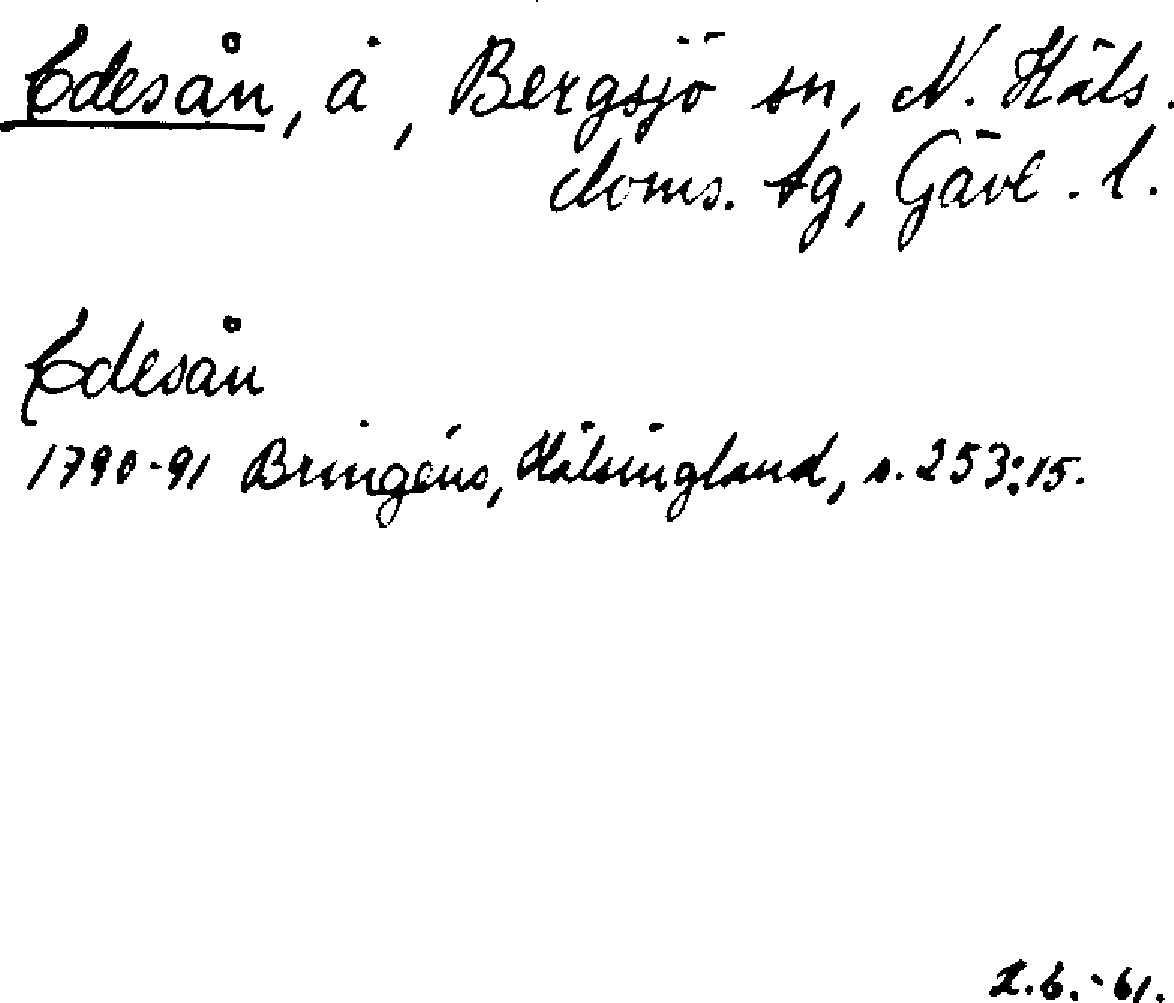 Edesån, å, Bergsjö sn, N. Häls.
doms. tg, Gävl. l.
Edesån
1790-91 Bringéus, Hälsingland, s. 253:15.
2.6.-61.